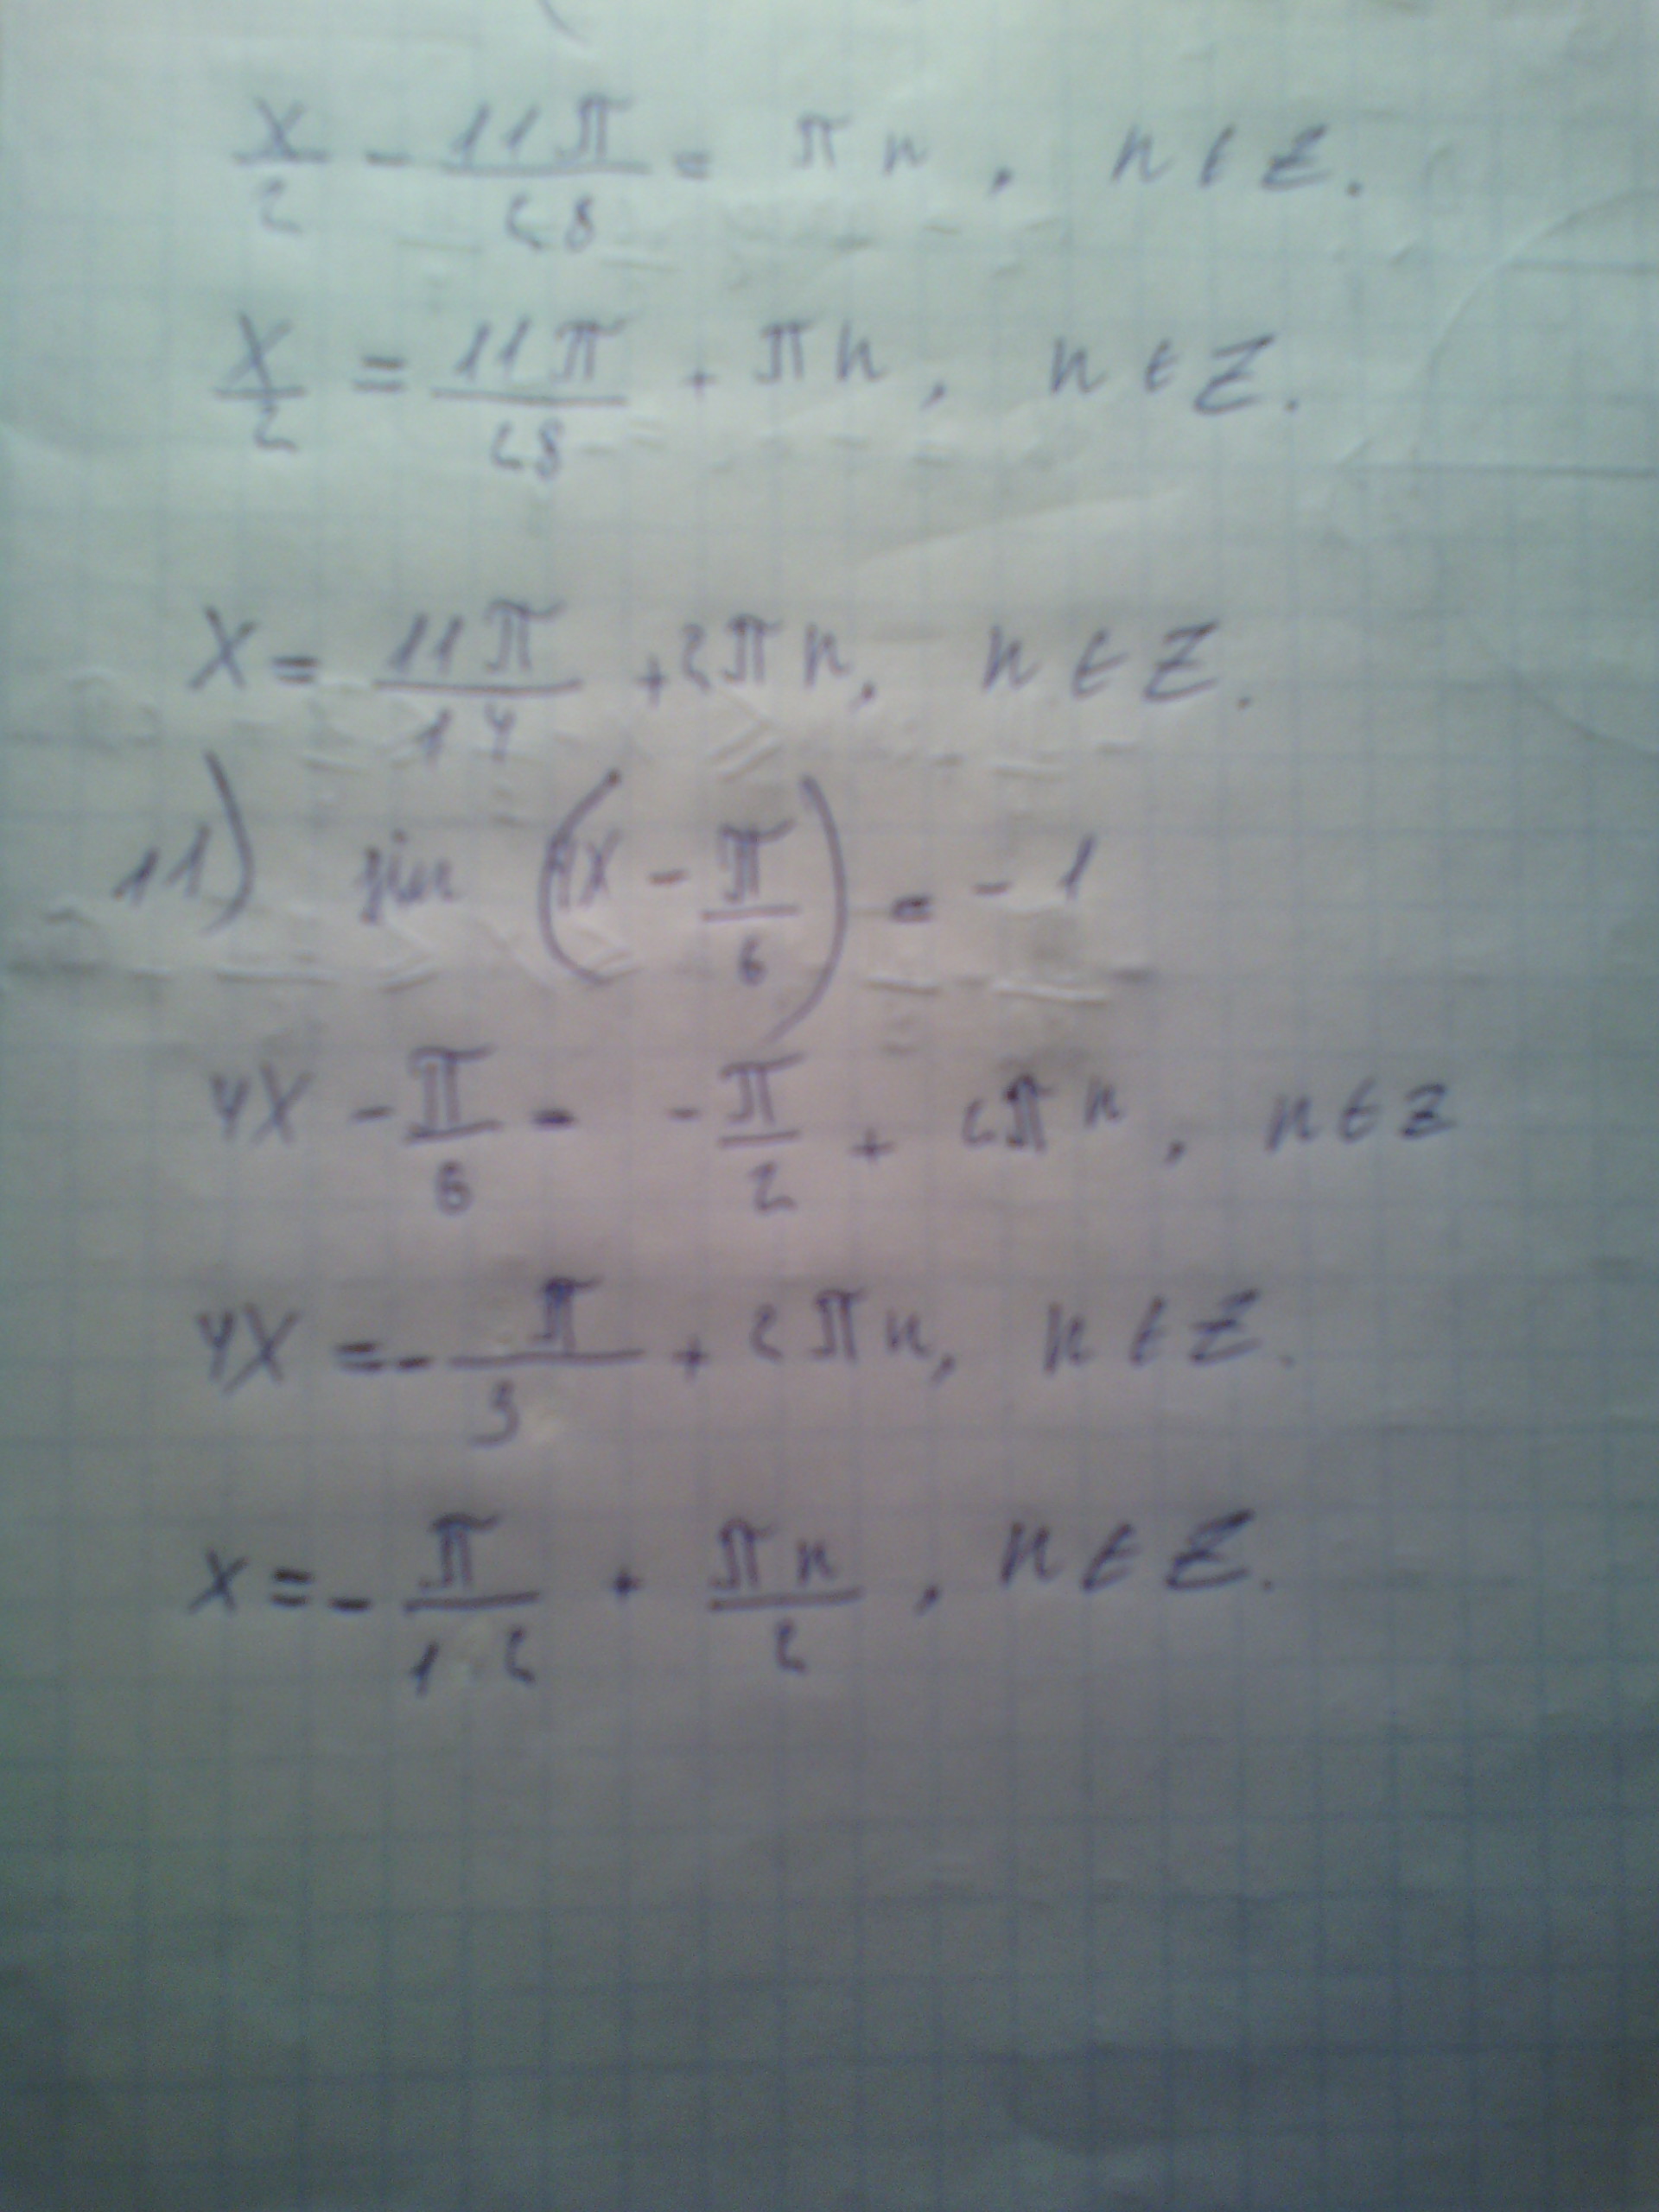 x/2 - 11π/28 = πn, n ∈ Z.
x/2 = 11π/28 + πn, n ∈ Z.
x = 11π/14 + 2πn, n ∈ Z.
11) sin (4x - π/6) = -1
4x - π/6 = -π/2 + 2πn, n ∈ Z
4x = -π/3 + 2πn, n ∈ Z.
x = -π/12 + πn/2, n ∈ Z.